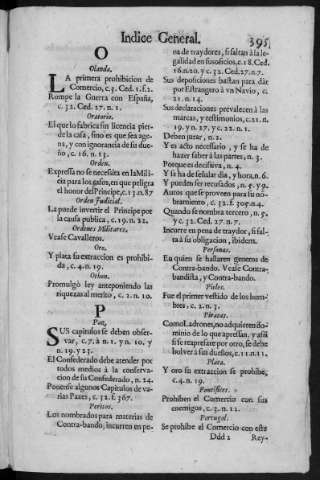 Indice General. 395
O
Olanda.
LA primera prohibicion de
Comercio, c. 3. Ced. 1. f. 2.
Rompe la Guerra con España,
c. 32. Ced. 27. n. 1.
Oratorio.
El que lo fabrica sin licencia pierde
la casa, sino es que sea agena,
y con ignorancia de su dueño,
c. 16. n. 13.
Orden.
Expressa no se necessita en la Milicia
para los casos, en que peligra
el honor del Principe, c. 13. n. 87
Orden Judicial.
La puede invertir el Principe por
la causa publica, c. 19. n. 22.
Ordenes Militares.
Vease Cavalleros.
Oro.
Y plata su extraccion es prohibida,
c. 4. n. 19.
Othon.
Promulgò ley anteponiendo las
riquezas al merito, c. 2. n. 10.
P
Paz,
SUS capitulos se deben observar,
c. 7. à n. 1. y n. 10. y
n. 19. y 23.
El Confederado debe atender por
todos medios à la conservacion
de su Confederado, n. 24.
Ponense algunos Capitulos de varias
Pazes, c. 32. f. 367.
Peritos.
Los nombrados para matarias de
Contra-bando, incurren en pena
de traydores, si faltan à la legalidad
en sus oficios, c. 18. Ced.
16. n. 20. y c. 32. Ced. 27. n. 7.
Sus deposiciones bastan para dàr
por Estrangero à vn Navio, c.
21. n. 14.
Sus declaraciones prevalecen à las
marcas, y testimonios, c. 21. n.
19. y n. 27. y c. 22. n. 1.
Deben jurar, n. 2.
Y es acto necessario, y se ha de
hazer saber à las partes, n. 3.
Porque es decisiva, n. 4.
Y se ha de señalar dia, y hora, n. 6.
Y pueden ser recusados, n. 5. y 9.
Autos que se proveen para su nombramiento,
c. 32. f. 305. n. 4.
Quando se nombra tercero, n. 5.
y c. 32. Ced. 27. n. 7.
Incurre en pena de traydor, si falta
à su obligacion, ibidem.
Personas.
En quien se hallaren generos de
Contra-bando. Vease Contrabandista,
y Contra-bando.
Pieles.
Fue el primer vestido de los hombres,
c. 2. n. 3.
Piratas.
Como Ladrones, no adquieren dominio
de lo que apresan, y assi
si se reapresare por otro, se debe
bolver à sus dueños, c. 11. n. 11.
Plata.
Y oro su extraccion se prohibe,
c. 4. n. 19.
Pontifices.
Prohiben el Comercio con sus
enemigos, c. 3. n. 12.
Portugal.
Se prohibe el Comercio con este
Ddd 2 Rey-